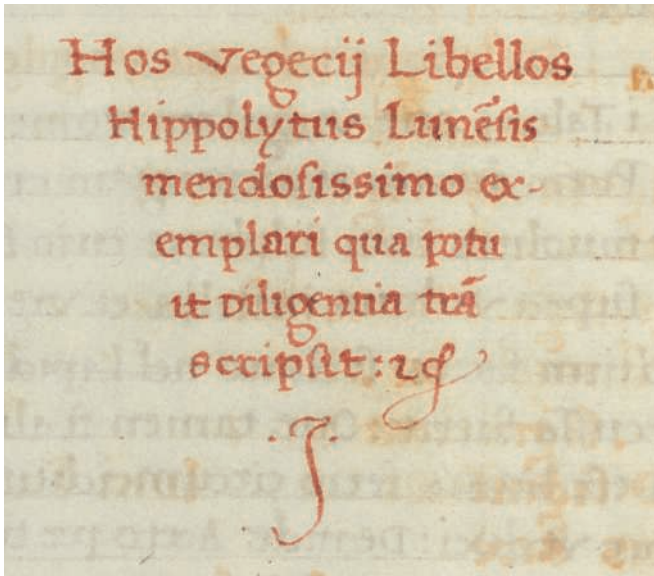 Hos Vegecij Libellos
Hippolytus Lunēsis
mendosissimo ex-
emplari qua potu
it diligentia trā
sccipsit:
.J.